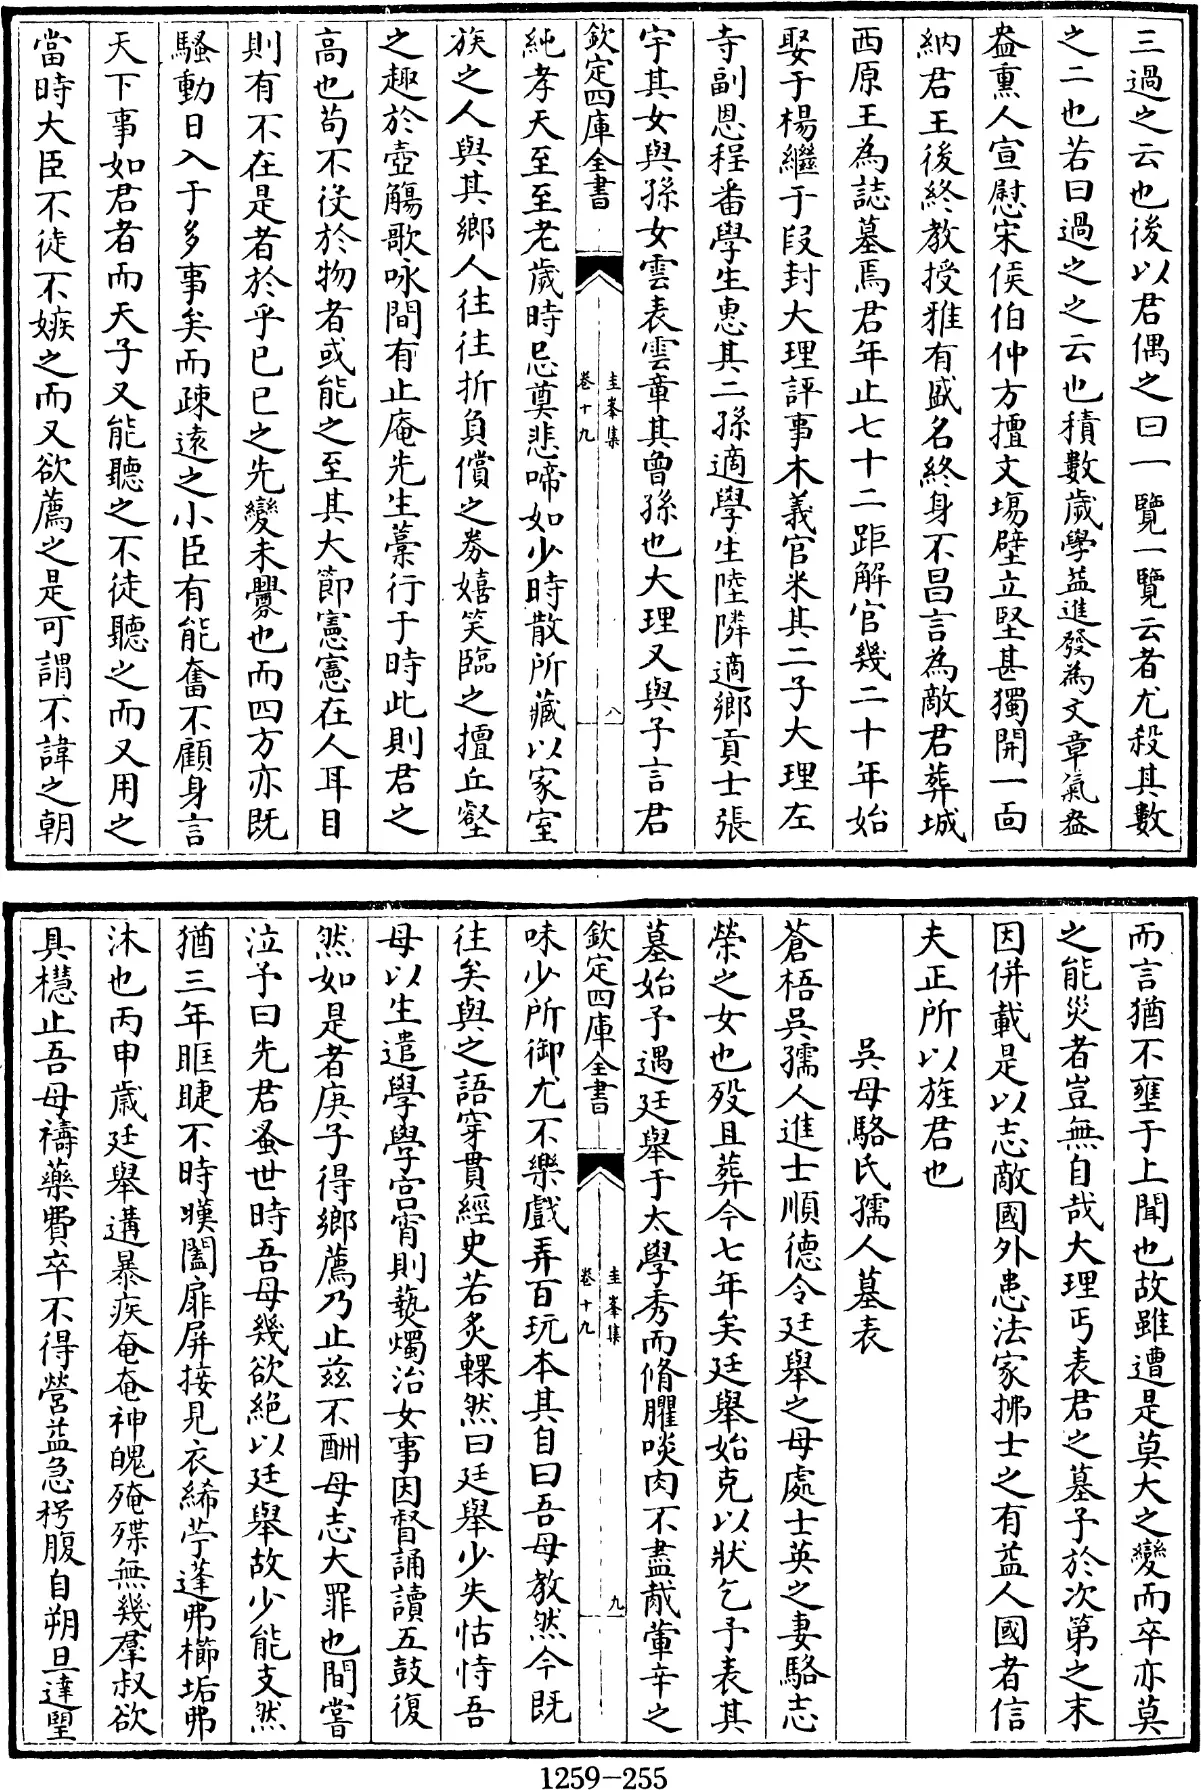 三過之云也後以君偶之曰一覽一覽云者尤殺其數
之二也若曰過之之云也積數歲學益進發為文章氣盎
盎熏人宣慰宋侯伯仲方擅文場壁立堅甚獨開一面
納君王後終教授雅有盛名終身不昌言為敵君葬城
西原王為誌墓焉君年止七十二距解官幾二十年始
娶于楊繼于段封大理評事木義官米其二子大理左
寺副恩程番學生惠其二孫適學生陸隣適鄉貢士張
宇其女與孫女雲表雲章其曾孫也大理又與予言君
欽定四庫全書
圭峯集
卷十九
八
純孝天至至老歲時忌奠悲啼如少時散所藏以家室
族之人與其鄉人往往折負償之券嬉笑臨之擅丘壑
之趣於壺觴歌咏間有止庵先生藁行于時此則君之
高也苟不役於物者或能之至其大節憲憲在人耳目
則有不在是者於乎已巳之先變未釁也而四方亦既
騷動日入于多事矣而疎遠之小臣有能奮不顧身言
天下事如君者而天子又能聽之不徒聽之而又用之
當時大臣不徒不嫉之而又欲薦之是可謂不諱之朝
而言猶不壅于上聞也故雖遭是莫大之變而卒亦莫
之能災者豈無自哉大理丐表君之墓予於次第之末
因併載是以志敵國外患法家拂士之有益人國者信
夫正所以旌君也
吳母駱氏孺人墓表
蒼梧吳孺人進士順德令廷舉之母處士英之妻駱志
榮之女也歿且葬今七年矣廷舉始克以狀乞予表其
墓始予遇廷舉于太學秀而脩臞啖肉不盡胾葷辛之
欽定四庫全書
圭峯集
卷十九
九
味少所御尤不樂戲弄百玩本其自曰吾母教然今既
往矣與之語穿貫經史若炙輠然曰廷舉少失怙恃吾
母以生遣學學宮宵則爇燭治女事因督誦讀五鼓復
然如是者庚子得鄉薦乃止茲不酬母志大罪也間嘗
泣予曰先君蚤世時吾母幾欲絕以廷舉故少能支然
猶三年眶睫不時暵闔扉屏接見衣絺苧蓬弗櫛垢弗
沐也丙申歲廷舉遘暴疾奄奄神魄殗殜無幾羣叔欲
具櫘止吾母禱藥費卒不得營益急枵腹自朔旦達朢
1259-255